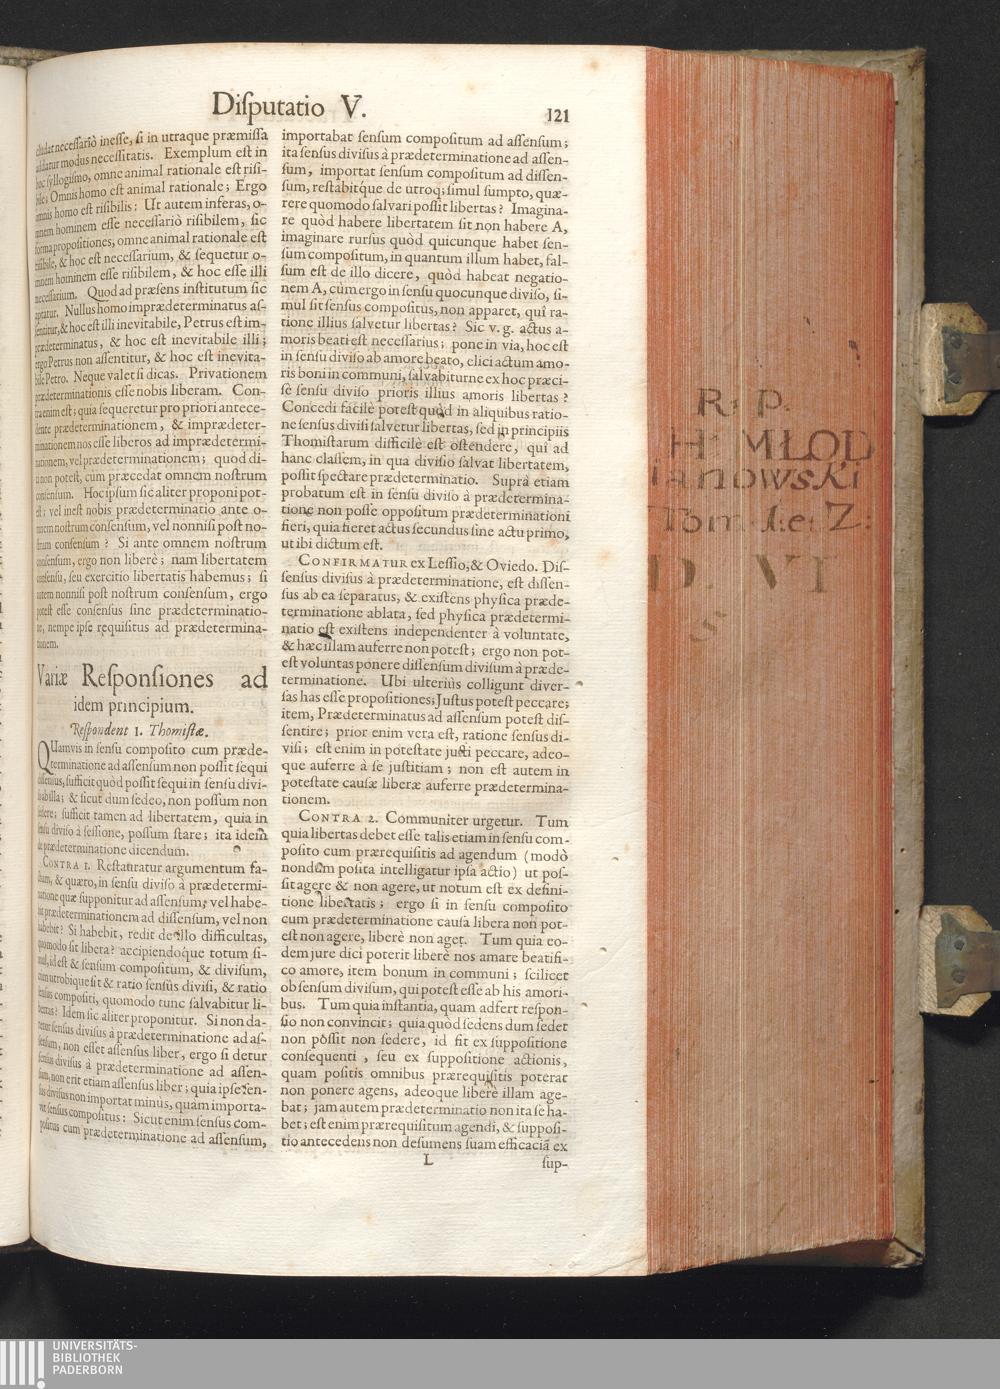 Disputatio V.
121
necessariò inesse, si in utraque præmissa
modus necessitatis. Exemplum est in
hoc syllogismo, omne animal rationale est risi-
bile; Omnis homo est animal rationale; Ergo
omnis homo est risibilis: Ut autem inferas, o-
mnem hominem esse necessariò risibilem, sic
forma propositiones, omne animal rationale est
risibile, & hoc est necessarium, & sequetur o-
mnem hominem esse risibilem, & hoc esse illi
necessarium. Quod ad præsens institutum sic
aptatur. Nullus homo imprædeterminatus as-
sentitur, & hoc est illi inevitabile, Petrus est im-
prædeterminatus, & hoc est inevitabile illi;
ergo Petrus non assentitur, & hoc est inevita-
bile Petro. Neque valet si dicas. Privationem
prædeterminationis esse nobis liberam. Con-
tra enim est; quia sequeretur pro priori antece-
dente prædeterminationem, & imprædeter-
minationem nos esse liberos ad imprædetermi-
nationem, vel prædeterminationem; quod di-
ci non potest, cum præcedat omnem nostrum
consensum. Hoc ipsum sic aliter proponi pot-
est; vel inest nobis prædeterminatio ante o-
mnem nostrum consensum, vel nonnisi post no-
strum consensum? Si ante omnem nostrum
consensum, ergo non liberè; nam libertatem
consensu, seu exercitio libertatis habemus; si
autem nonnisi post nostrum consensum, ergo
potest esse consensus sine prædeterminatio-
ne, nempe ipse requisitus ad prædetermina-
tionem.
Variæ Responsiones ad
idem principium.
Respondent 1. Thomistæ.
QUamvis in sensu composito cum præde-
terminatione ad assensum non possit sequi
dissensus, sufficit quòd possit sequi in sensu divi-
so ab illa; & sicut dum sedeo, non possum non
sedere; sufficit tamen ad libertatem, quia in
sensu diviso à sessione, possum stare; ita idem
de prædeterminatione dicendum.
CONTRA 1. Restauratur argumentum fa-
ctum, & quæro, in sensu diviso à prædetermi-
natione quæ supponitur ad assensum; vel habe-
bit prædeterminationem ad dissensum, vel non
habebit? Si habebit, redit de illo difficultas,
quomodo sit libera? accipiendoque totum si-
mul, id est & sensum compositum, & divisum,
cum utrobique sit & ratio sensûs divisi, & ratio
sensûs compositi, quomodo tunc salvabitur li-
bertas? Idem sic aliter proponitur. Si non da-
retur sensus divisus à prædeterminatione ad as-
sensum, non esset assensus liber, ergo si detur
sensus divisus à prædeterminatione ad assen-
sum, non erit etiam assensus liber; quia ipse sen-
sus divisus non importat minùs, quàm importa-
vit sensus compositus: Sicut enim sensus com-
positus cum prædeterminatione ad assensum,
importabat sensum compositum ad assensum;
ita sensus divisus à prædeterminatione ad assen-
sum, importat sensum compositum ad dissen-
sum, restabitq́ue de utroq; simul sumpto, quæ-
rere quomodo salvari possit libertas? Imagina-
re quòd habere libertatem sit non habere A,
imaginare rursus quòd quicunque habet sen-
sum compositum, in quantum illum habet, fal-
sum est de illo dicere, quòd habeat negatio-
nem A, cùm ergo in sensu quocunque diviso, si-
mul sit sensus compositus, non apparet, quî ra-
tione illius salvetur libertas? Sic v. g. actus a-
moris beati est necessarius; pone in via, hoc est
in sensu diviso ab amore beato, elici actum amo-
ris boni in communi, salvabiturne ex hoc præci-
sè sensu diviso prioris illius amoris libertas?
Concedi facilè potest quòd in aliquibus ratio-
ne sensus divisi salvetur libertas, sed in principiis
Thomistarum difficilè est ostendere, quî ad
hanc classem, in qua divisio salvat libertatem,
possit spectare prædeterminatio. Suprà etiam
probatum est in sensu diviso à prædetermina-
tione non posse oppositum prædeterminationi
fieri, quia fieret actus secundus sine actu primo,
ut ibi dictum est.
CONFIRMATUR ex Lessio, & Oviedo. Dis-
sensus divisus à prædeterminatione, est dissen-
sus ab ea separatus, & existens physica præde-
terminatione ablata, sed physica prædetermi-
natio est existens independenter à voluntate,
& hæc illam auferre non potest; ergo non pot-
est voluntas ponere dissensum divisum à præde-
terminatione. Ubi ulteriùs colligunt diver-
sas has esse propositiones; Justus potest peccare;
item, Prædeterminatus ad assensum potest dis-
sentire; prior enim vera est, ratione sensus di-
visi; est enim in potestate justi peccare, adeo-
que auferre à se justitiam; non est autem in
potestate causæ liberæ auferre prædetermina-
tionem.
CONTRA 2. Communiter urgetur. Tum
quia libertas debet esse talis etiam in sensu com-
posito cum prærequisitis ad agendum (modò
nondum posita intelligatur ipsa actio) ut pos-
sit agere & non agere, ut notum est ex defini-
tione libertatis; ergo si in sensu composito
cum prædeterminatione causa libera non pot-
est non agere, liberè non aget. Tum quia eo-
dem jure dici poterit liberè nos amare beatifi-
co amore, item bonum in communi; scilicet
ob sensum divisum, qui potest esse ab his amori-
bus. Tum quia instantia, quam adfert respon-
sio non convincit; quia quòd sedens dum sedet
non possit non sedere, id fit ex suppositione
consequenti, seu ex suppositione actionis,
quam positis omnibus prærequisitis poterat
non ponere agens, adeoque liberè illam age-
bat; jam autem prædeterminatio non ita se ha-
bet; est enim prærequisitum agendi, & supposi-
tio antecedens non desumens suam efficaciã ex
L
sup-
R: P.
MŁOD
ianowski
Tom 1: et 2:
D. VI
S
UNIVERSITÄTS-
BIBLIOTHEK
PADERBORN